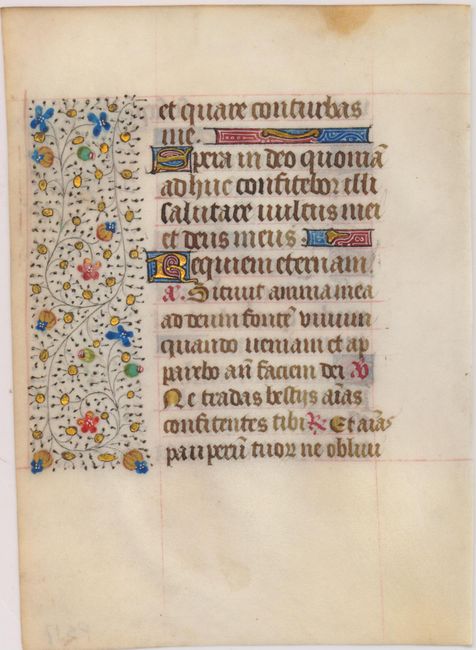 et quare conturbas
me
Spera in deo quoniā
adhuc confitebor illi
salutare uultus mei
et deus meus.
Requiem eternam
a͛. Sitiuit anima mea
ad deum fontē viuum
quando ueniam et ap
parebo añ faciem dei. v̾
Ne tradas bestijs aīas
confitentes tibi ℞ Et aīas
pauperū tuoꝝ ne obliui